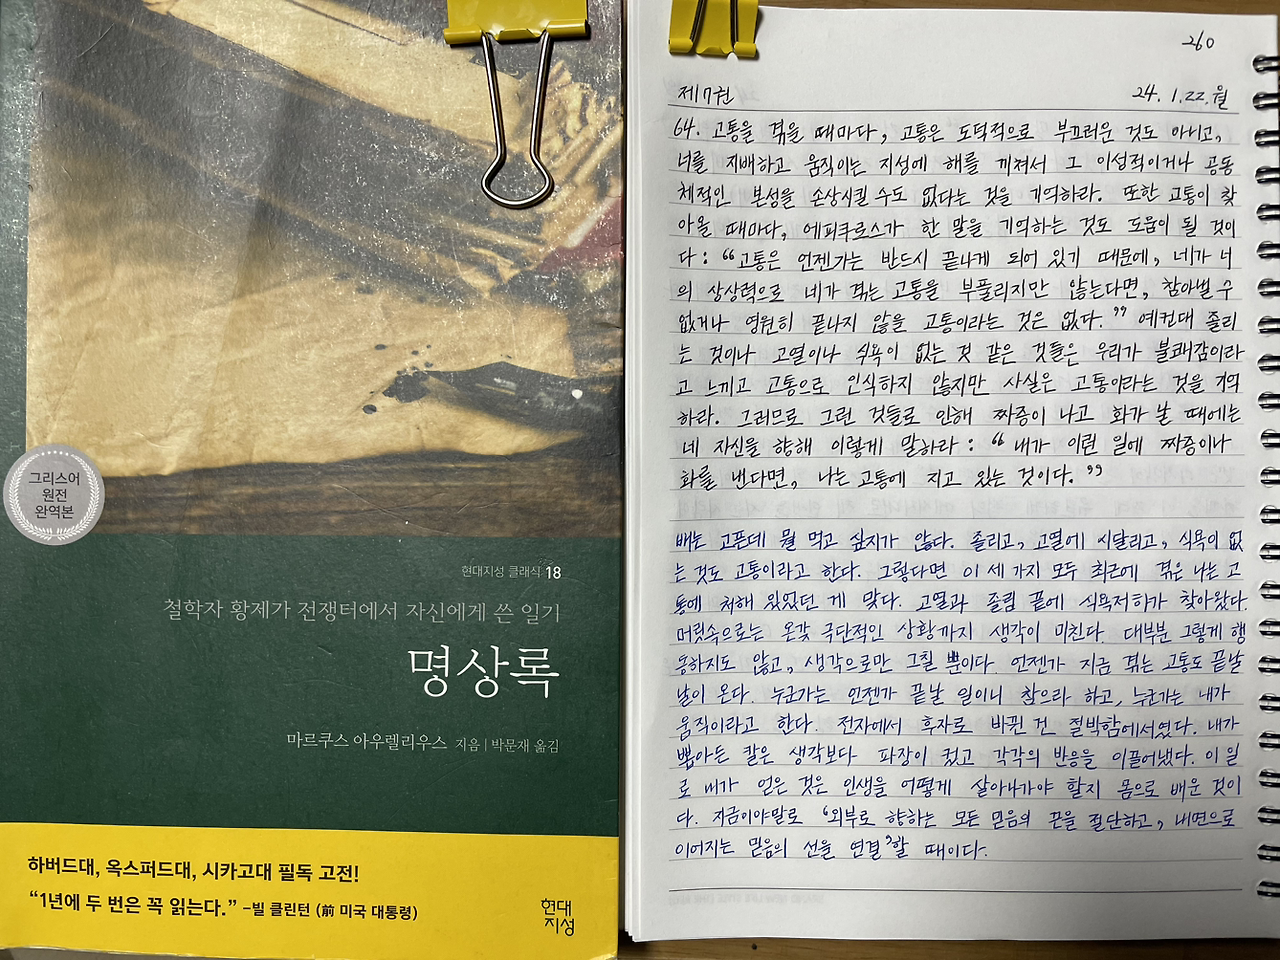 그리스어
원전
완역본
현대지성 클래식 18
철학자 황제가 전쟁터에서 자신에게 쓴 일기
명상록
마르쿠스 아우렐리우스 지음 | 박문재 옮김
하버드대, 옥스퍼드대, 시카고대 필독 고전!
“1년에 두 번은 꼭 읽는다.” –빌 클린턴 (前 미국 대통령)
현대
지성
260
제17권 24. 1.22. 월
64. 고통을 겪을 때마다, 고통은 도덕적으로 부끄러운 것도 아니고,
너를 지배하고 움직이는 지성에 해를 끼쳐서 그 이성적이거나 공동
체적인 본성을 손상시킬 수도 없다는 것을 기억하라. 또한 고통이 찾
아올 때마다, 에피쿠로스가 한 말을 기억하는 것도 도움이 될 것이
다: “고통은 언젠가는 반드시 끝나게 되어 있기 때문에, 네가 너
의 상상력으로 네가 겪는 고통을 부풀리지만 않는다면, 참아낼 수
없거나 영원히 끝나지 않을 고통이라는 것은 없다.” 예컨대 졸리
는 것이나 고열이나 식욕이 없는 것 같은 것들은 우리가 불쾌감이라
고 느끼고 고통으로 인식하지 않지만 사실은 고통이라는 것을 기억
하라. 그러므로 그런 것들로 인해 짜증이 나고 화가 날 때에는
네 자신을 향해 이렇게 말하라: “내가 이런 일에 짜증이나
화를 낸다면, 나는 고통에 지고 있는 것이다.”
배는 고픈데 뭘 먹고 싶지가 않다. 졸리고, 고열에 시달리고, 식욕이 없
는 것도 고통이라고 한다. 그렇다면 이 세 가지 모두 최근에 겪은 나는 고
통에 처해 있었던 게 맞다. 고열과 졸림 끝에 식욕저하가 찾아왔다.
머릿속으로는 온갖 극단적인 상황까지 생각이 미친다. 대부분 그렇게 행
동하지도 않고, 생각으로만 그칠 뿐이다. 언젠가 지금 겪는 고통도 끝날
날이 온다. 누군가는 언젠가 끝날 일이니 참으라 하고, 누군가는 내가
움직이라고 한다. 전자에서 후자로 바뀐 건 절박함에서였다. 내가
뽑아든 칼은 생각보다 파장이 컸고 각각의 반응을 이끌어냈다. 이 일
로 내가 얻은 것은 인생을 어떻게 살아나가야 할지 몸으로 배운 것이
다. 지금이야말로 ‘외부로 향하는 모든 믿음의 끈을 절단하고, 내면으로
이어지는 믿음의 선을 연결’할 때이다.